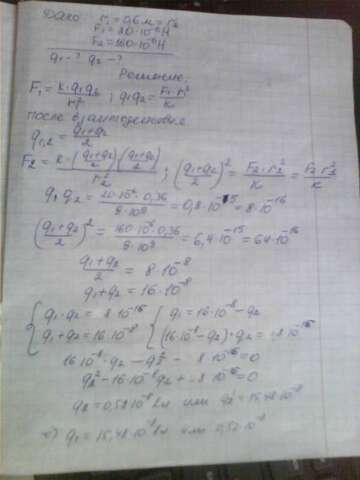 Дано: r₁ = 0,6 м = r₂
F₁ = 20·10⁻⁶ Н
F₂ = 160·10⁻⁶ Н
q₁ - ? q₂ - ?
Решение:
F₁ = k·q₁q₂ / r₁² ; q₁q₂ = F₁·r₁² / k
после взаимодействия
q₁,₂ = (q₁+q₂)/2
F₂ = k·((q₁+q₂)/2)((q₁+q₂)/2) / r₂² ; ((q₁+q₂)/2)² = F₂·r₂² / k = F₂·r₁² / k
q₁q₂ = 20·10⁻⁶·0,36 / 9·10⁹ = 0,8·10⁻¹⁵ = 8·10⁻¹⁶
((q₁+q₂)/2)² = 160·10⁻⁶·0,36 / 9·10⁹ = 6,4·10⁻¹⁵ = 64·10⁻¹⁶
(q₁+q₂)/2 = 8·10⁻⁸
q₁+q₂ = 16·10⁻⁸
{ q₁·q₂ = 8·10⁻¹⁶ { q₁ = 16·10⁻⁸ - q₂
{ q₁+q₂ = 16·10⁻⁸ { (16·10⁻⁸ - q₂)·q₂ = 8·10⁻¹⁶
16·10⁻⁸·q₂ - q₂² - 8·10⁻¹⁶ = 0
q₂² - 16·10⁻⁸q₂ + 8·10⁻¹⁶ = 0
q₂ = 0,52·10⁻⁸ Кл или q₂ = 15,48·10⁻⁸
q₁ = 15,48·10⁻⁸ Кл или 0,52·10⁻⁸